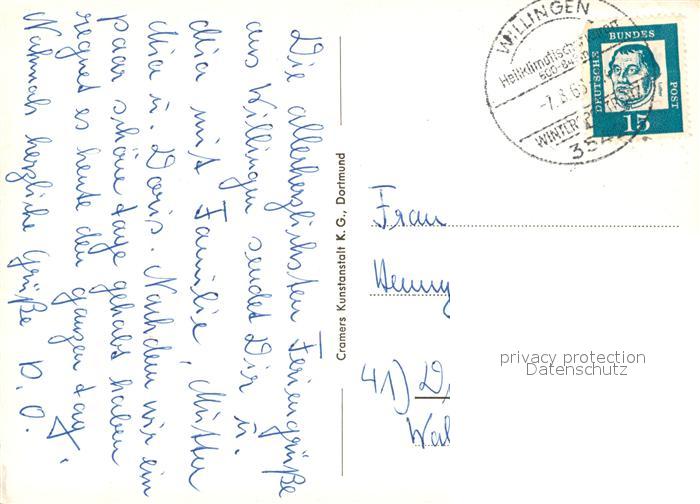 Die allerherzlichsten Feriengrüße
aus Willingen sendet Dir u.
mit Familie, Mutter
u. Doris. Nachdem wir ein
paar schöne Tage gehabt haben
regnet es heute den ganzen Tag.
Nochmals herzliche Grüße D. O.
Cramers Kunstanstalt K. G., Dortmund
WILLINGEN
Heilklimatischer Kurort
WINTERSPORTPLATZ
354
DEUTSCHE BUNDESPOST
15
Frau
Henny
41) D
Wal
privacy protection
Datenschutz